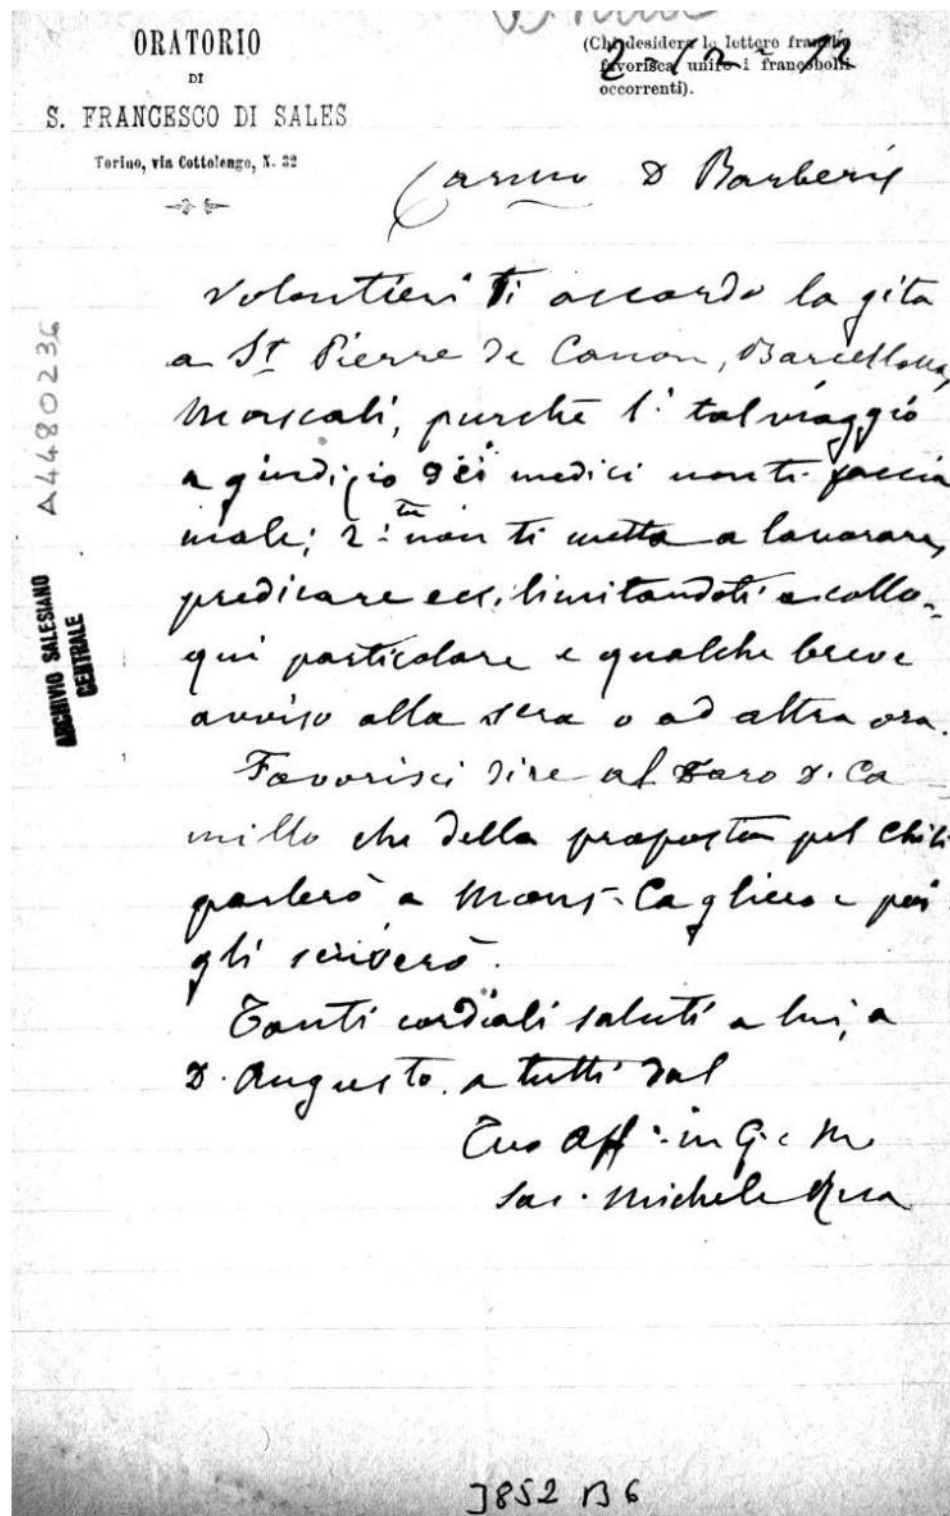 ORATORIO
DI
S. FRANCESCO DI SALES
Torino, via Cottolengo, N. 32
(Chi desidera le lettere franche
favorisca unire i francobolli
occorrenti).
2-12-92
Carmo D Barberis
Volontieri Ti accordo la gita
a St Pierre de Canon, Barcellona,
Mascali, purchè 1.° tal viaggio
a giudizio dei medici non ti faccia
male; 2.° tu non ti metta a lavorare,
predicare ecc. limitandoti a collo-
qui particolare e qualche breve
avviso alla sera o ad altra ora.
Favorisci dire al Caro D. Ca
millo che della proposta pel Chilì
parlerò a Mons. Cagliero e poi
gli scriverò.
Tanti cordiali saluti a lui, a
D. Augusto, a tutti dal
Tuo Aff.° in G. e M.
Sac. Michele Rua
A4480236
ARCHIVIO SALESIANO
CENTRALE
3852 B6